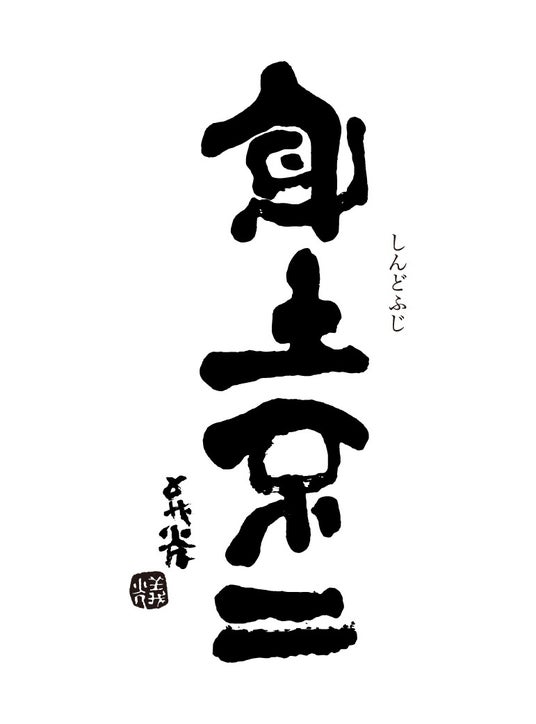 しんどふじ
身土不二